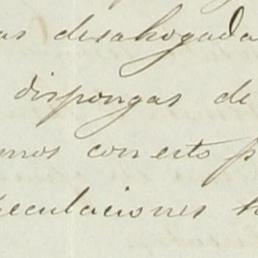 as desahogada
dispongas de
mos con esto p
peculaciones